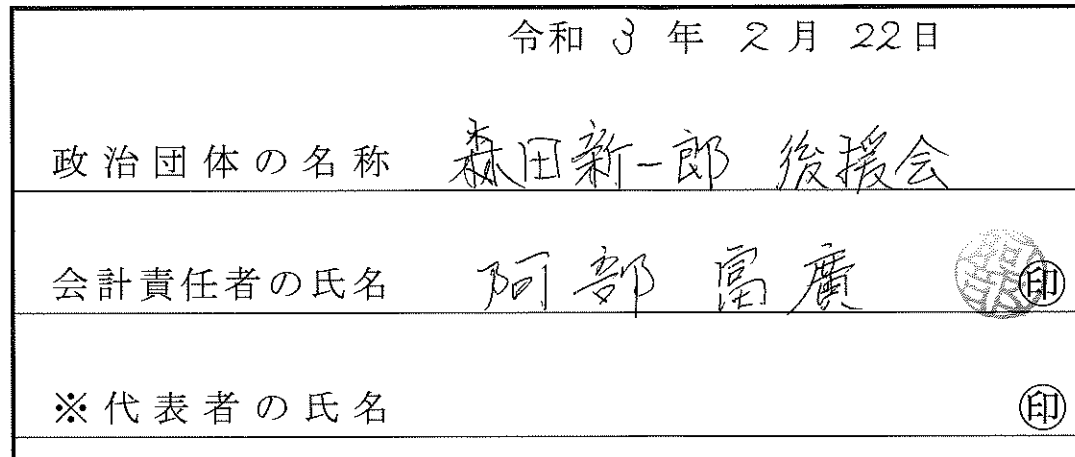 令和 3 年 2 月 22日
政治団体の名称 森田新一郎 後援会
会計責任者の氏名 阿部 富廣 ㊞
※代表者の氏名 ㊞